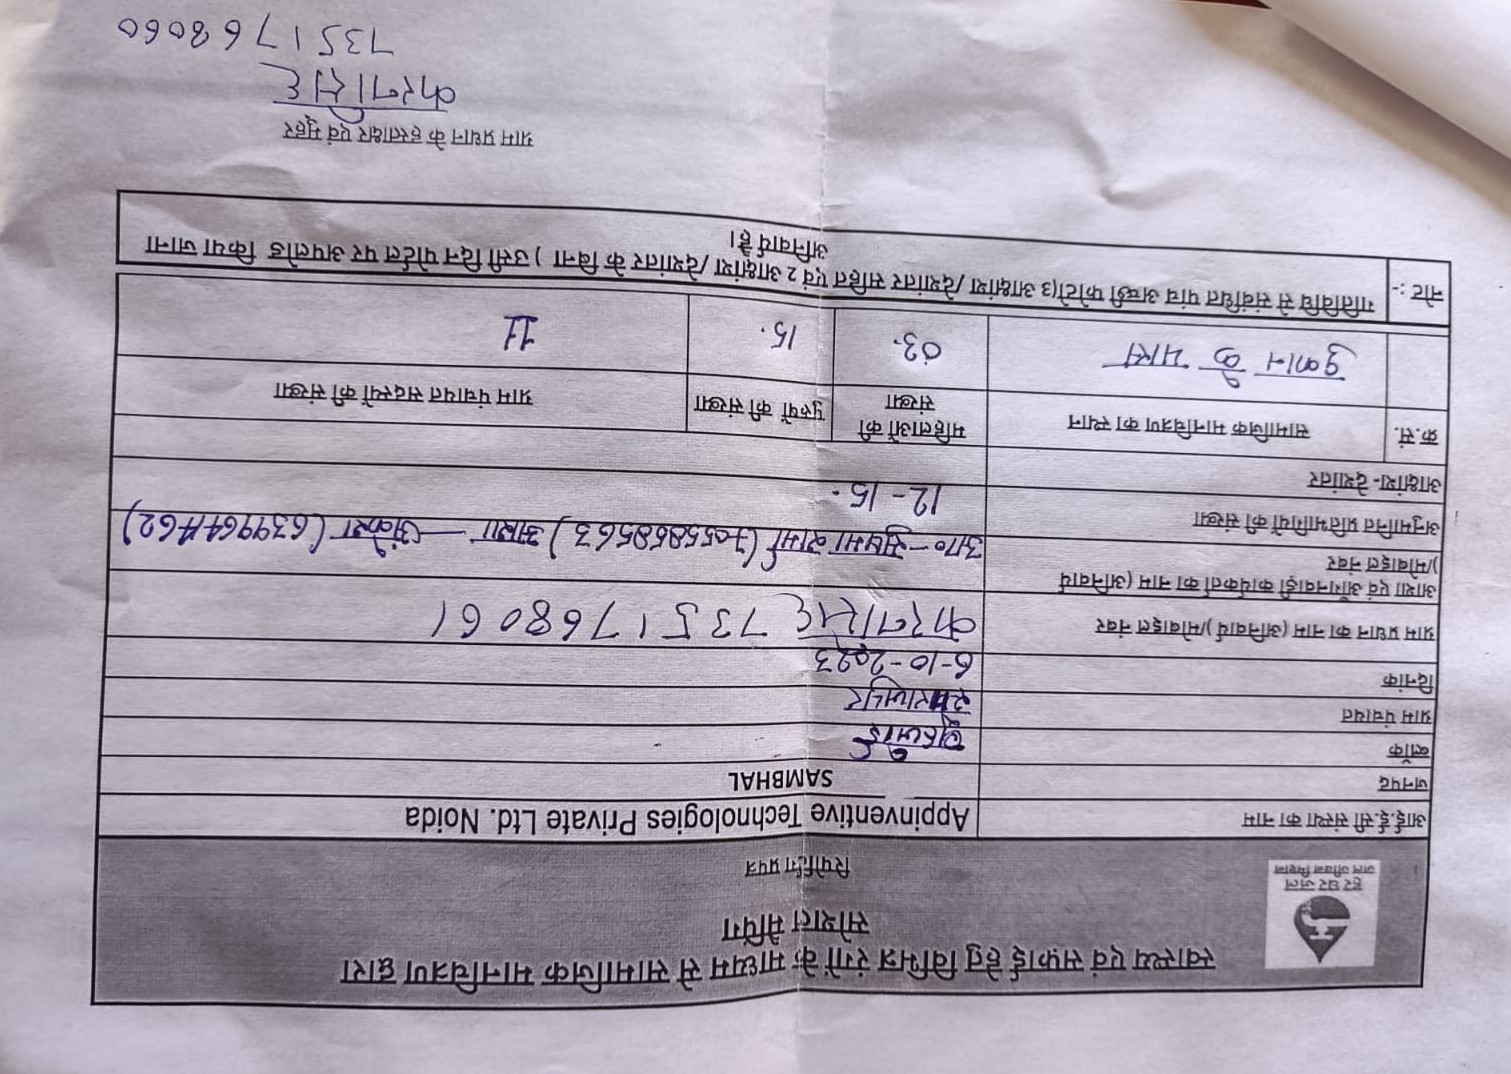 स्वास्थ्य एवं सफाई हेतु विभिन्न रंगों के माध्यम से सामाजिक मानचित्रण द्वारा
सोशल मैपिंग
रिपोर्टिंग प्रपत्र
हर घर जल
जल जीवन मिशन
आई.ई.सी संस्था का नाम Appinventive Technologies Private Ltd. Noida
जनपद SAMBHAL
ब्लॉक
ग्राम पंचायत
दिनांक 6-10-2023
ग्राम प्रधान का नाम (अनिवार्य)/मोबाइल नंबर 7351768061
आशा एवं आँगनवाड़ी कार्यकर्ता का नाम (अनिवार्य
)/मोबाइल नंबर आंग०-सुषमा शर्मा (7055858563) आशा —
अनुमानित प्रतिभागियों की संख्या 12-15.
आक्षांश- देशांतर
क्र.सं. सामाजिक मानचित्रण का स्थान महिलाओं की संख्या पुरुषों की संख्या ग्राम पंचायत सदस्यों की संख्या
दुकान के पास 03. 15. 11
नोट :- गतिविधि से संबंधित पांच अच्छी फोटो(3 आक्षांश /देशांतर सहित एवं 2 आक्षांश /देशांतर के बिना ) उसी दिन पोर्टल पर अपलोड किया जाना
अनिवार्य है।
ग्राम प्रधान के हस्ताक्षर एवं मुहर
7351768060